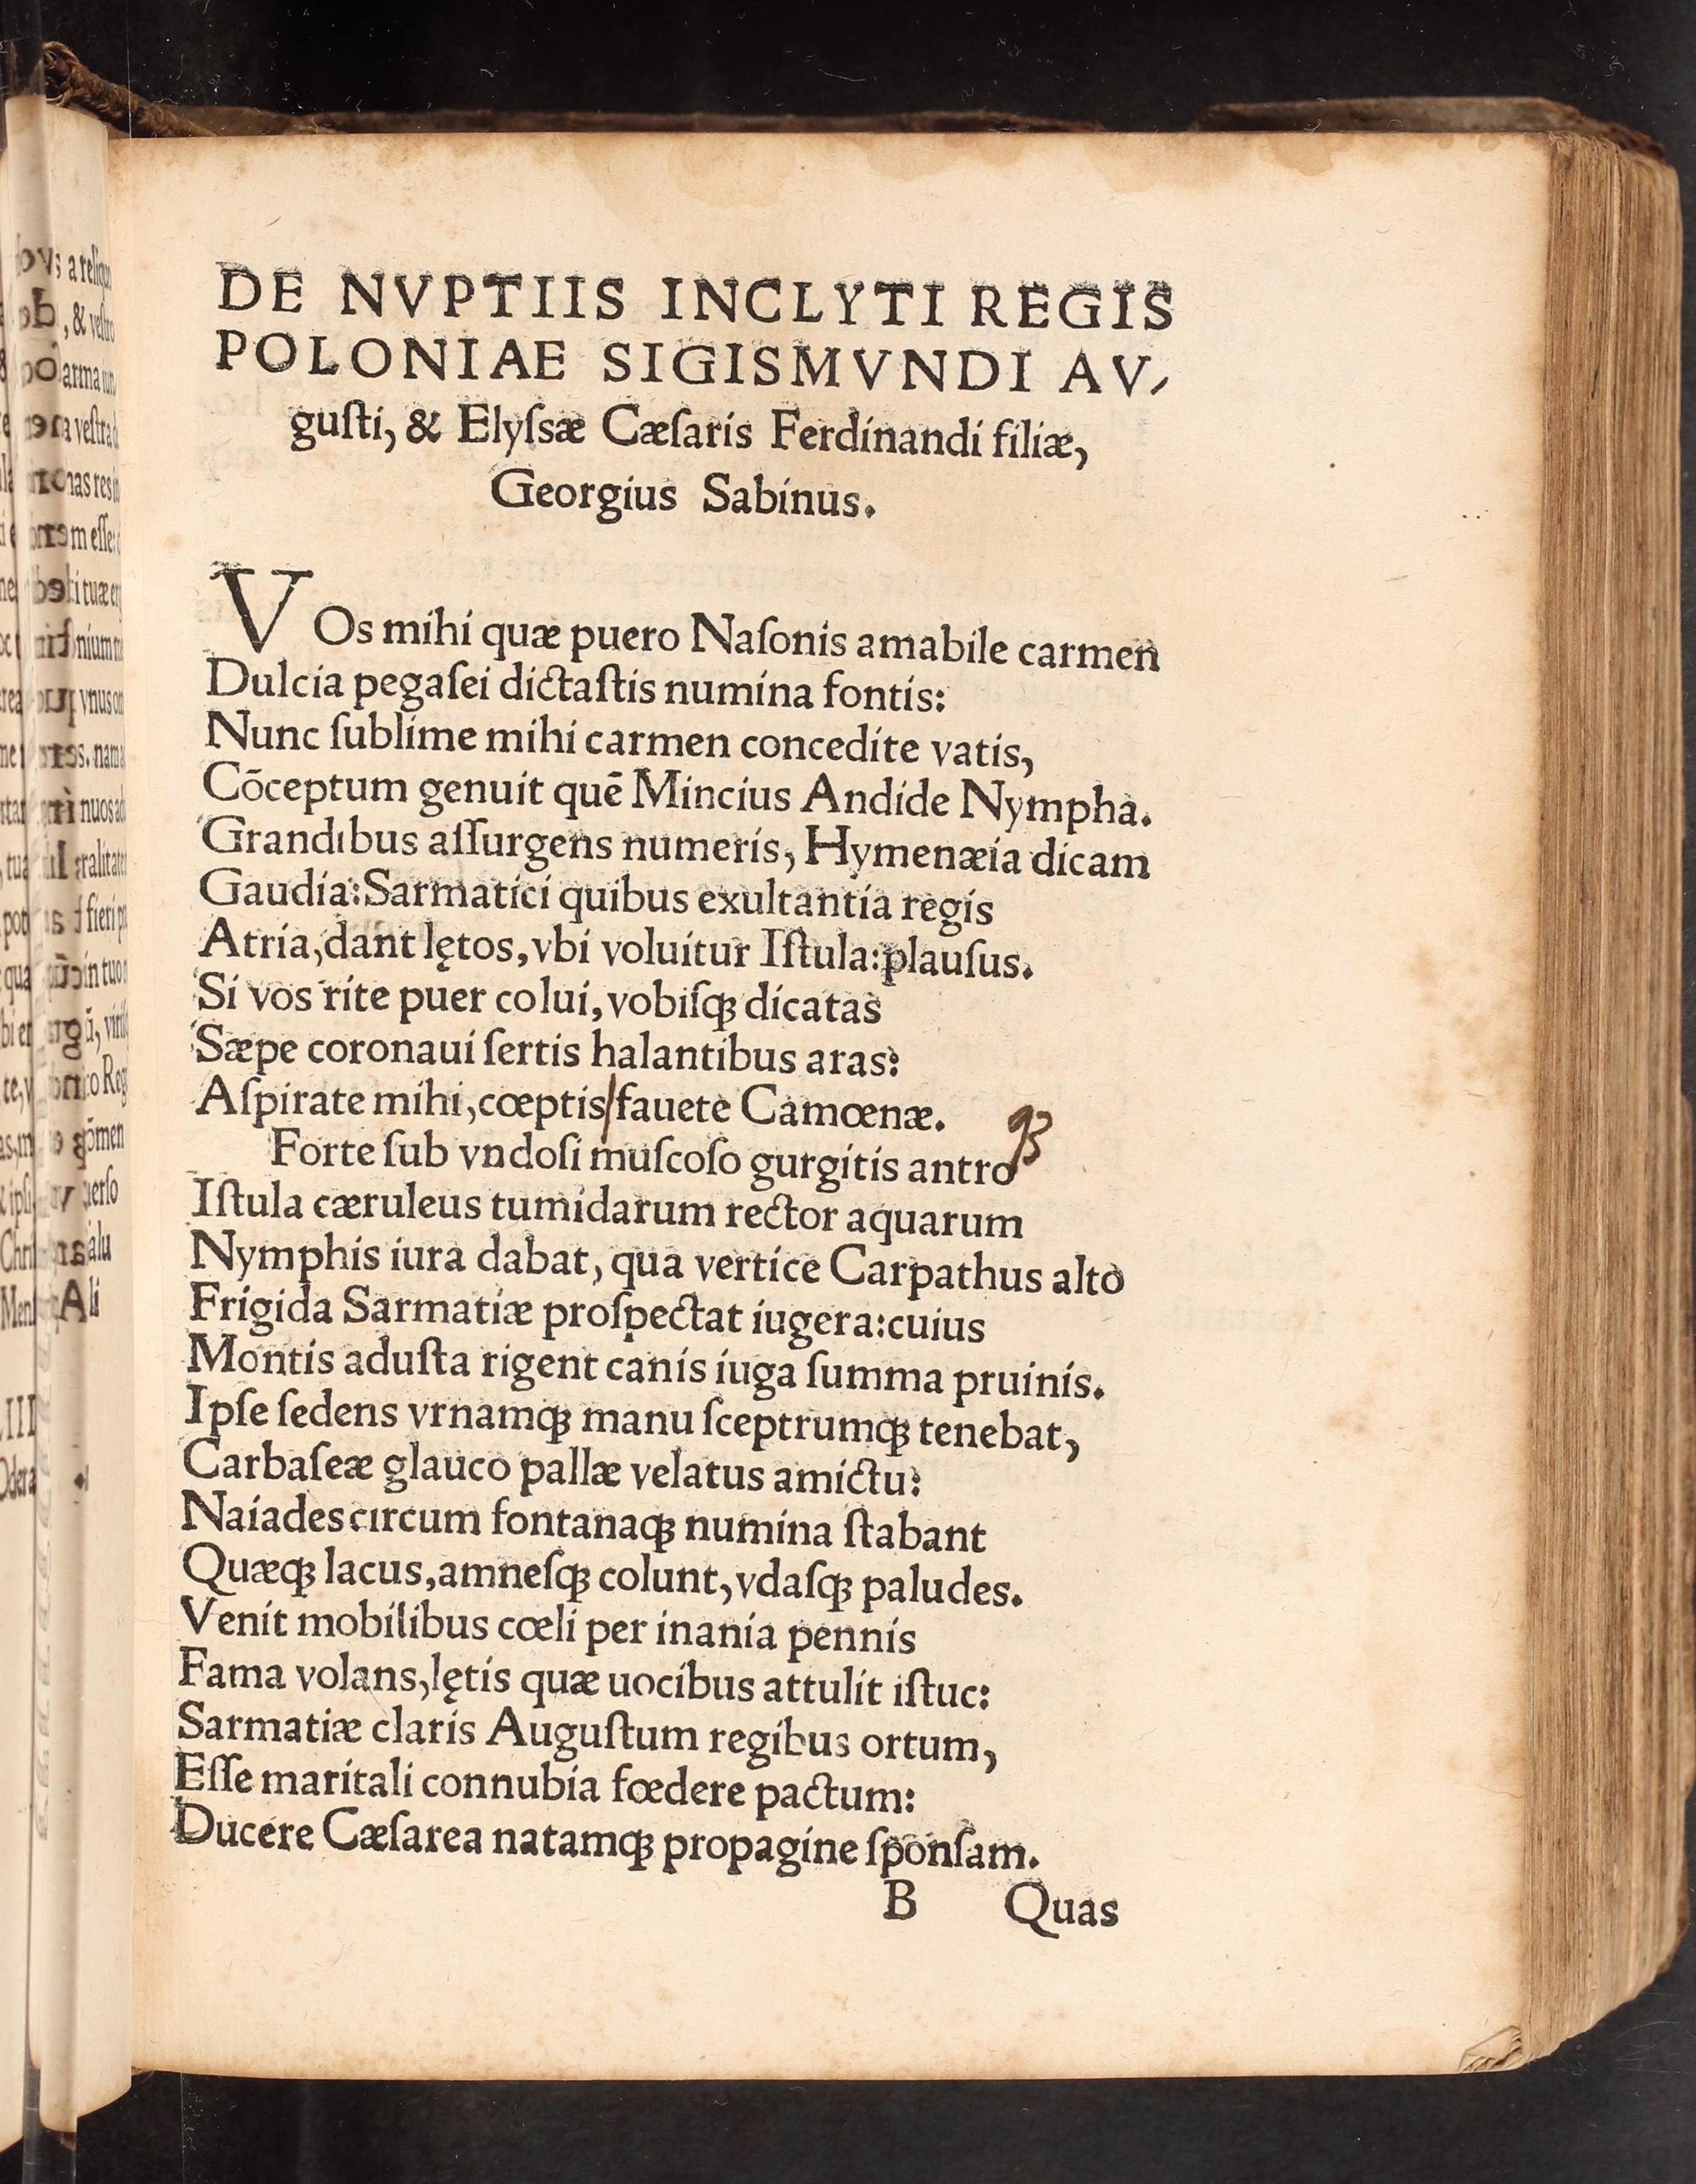 DE NVPTIIS INCLYTI REGIS
POLONIAE SIGISMVNDI AV⸗
guſti, & Elyſsæ Cæſaris Ferdinandi filiæ,
Georgius Sabinus.
VOs mihi quæ puero Naſonis amabile carmen
Dulcia pegaſei dictaſtis numina fontis:
Nunc ſublime mihi carmen concedite vatis,
Cōceptum genuit quē Mincius Andide Nympha.
Grandibus aſſurgens numeris, Hymenæia dicam
Gaudia: Sarmatici quibus exultantia regis
Atria, dant lętos, vbi voluitur Iſtula: plauſus.
Si vos rite puer colui, vobiſqꝫ dicatas
Sæpe coronaui ſertis halantibus aras:
Aſpirate mihi, cœptis fauete Camœnæ.
Forte ſub vndoſi muſcoſo gurgitis antro
Iſtula cæruleus tumidarum rector aquarum
Nymphis iura dabat, qua vertice Carpathus alto
Frigida Sarmatiæ proſpectat iugera: cuius
Montis aduſta rigent canis iuga ſumma pruinis.
Ipſe ſedens vrnamqꝫ manu ſceptrumqꝫ tenebat,
Carbaſeæ glauco pallæ velatus amictu:
Naiades circum fontanaqꝫ numina ſtabant
Quæqꝫ lacus, amneſqꝫ colunt, vdaſqꝫ paludes.
Venit mobilibus cœli per inania pennis
Fama volans, lętis quæ uocibus attulit iſtuc:
Sarmatiæ claris Auguſtum regibus ortum,
Eſſe maritali connubia fœdere pactum:
Ducere Cæſarea natamqꝫ propagine ſponſam.
B Quas